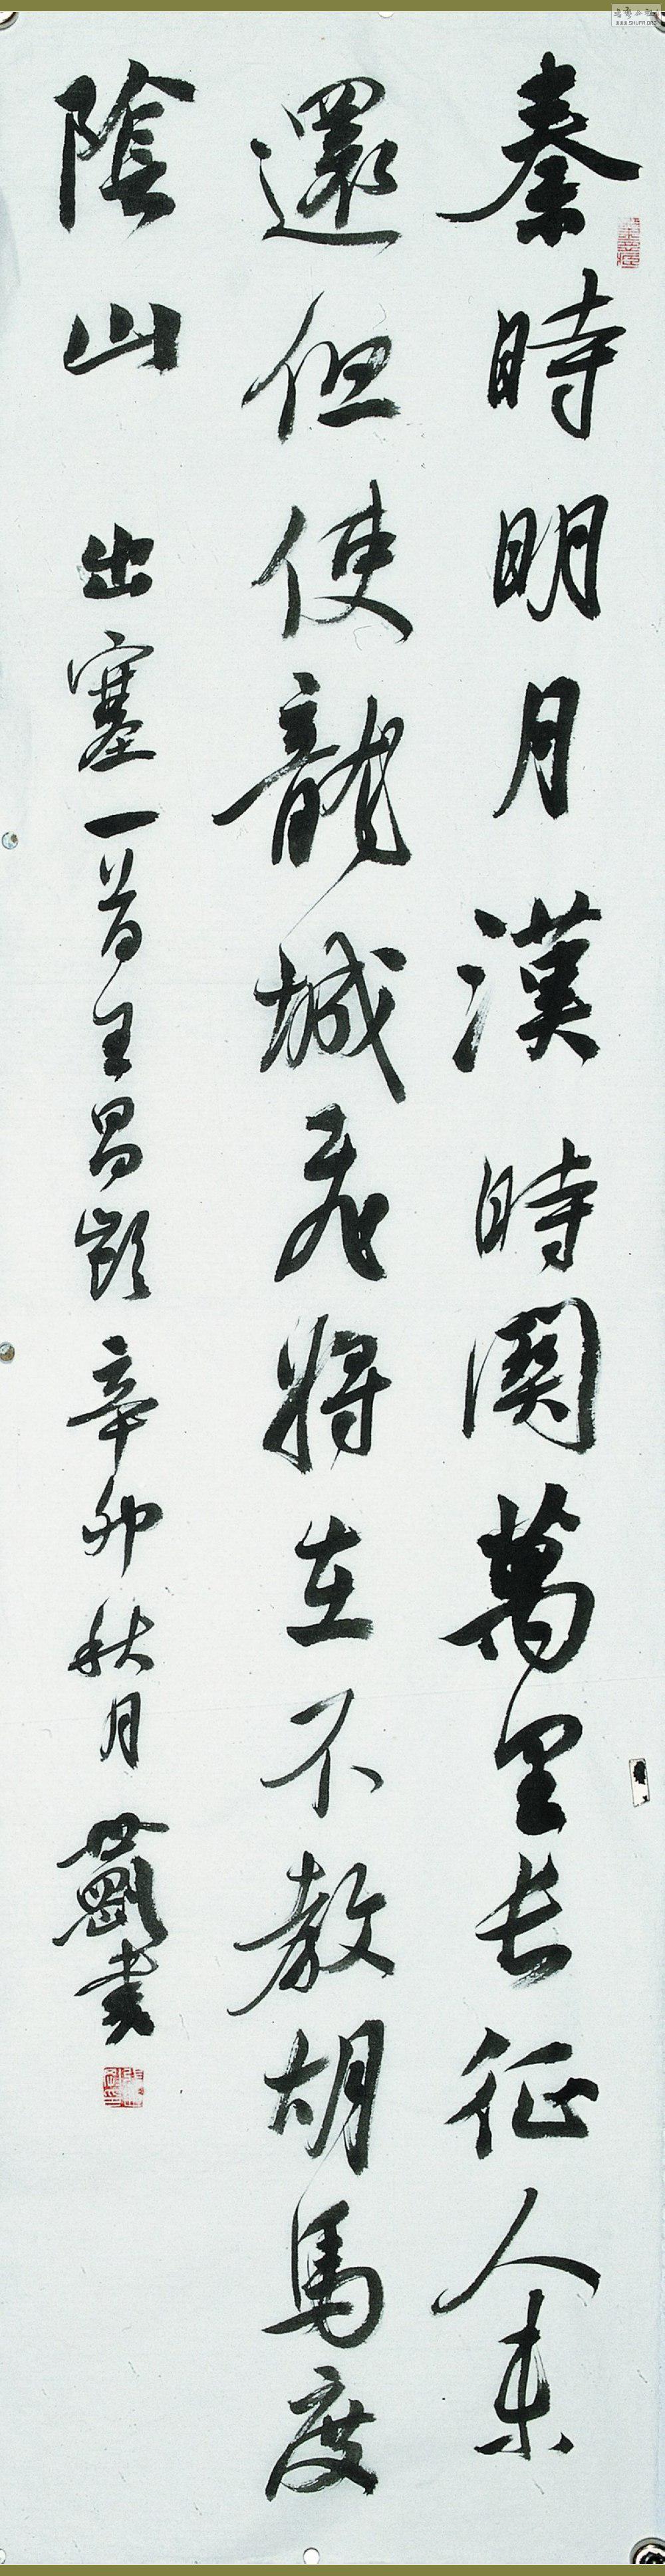 秦時明月漢時関萬里长征人未
還但使龍城飛将在不教胡馬度
陰山 出塞一首王昌齡 辛卯秋月 書
WWW.SHUFA.ORG